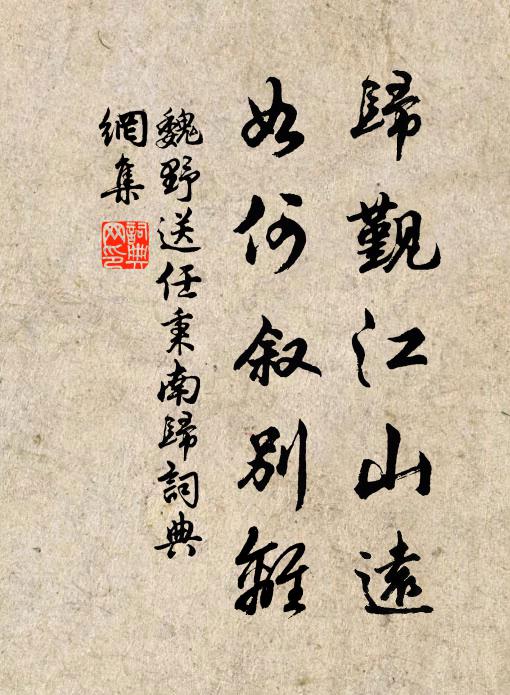 歸觀江山遠
如何叙別離
魏野送任秉南歸詞典
網集
詞典
网印